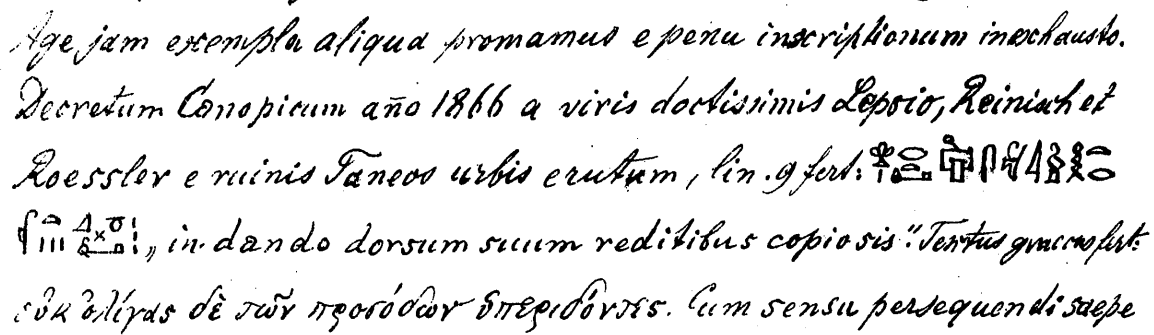 Age jam exempla aliqua promamus e penu inscriptionum inexhausto.
Decretum Canopicum año 1866 a viris doctissimis Lepsio, Reinisch et
Roessler e ruinis Taneos urbis erutum, lin. 9 fert:
„in dando dorsum suum reditibus copiosis." Textus graecus fert:
οὐκ ὀλίγας δὲ τῶν προσόδων ὑπεριδόντες. Cum sensu persequendi saepe